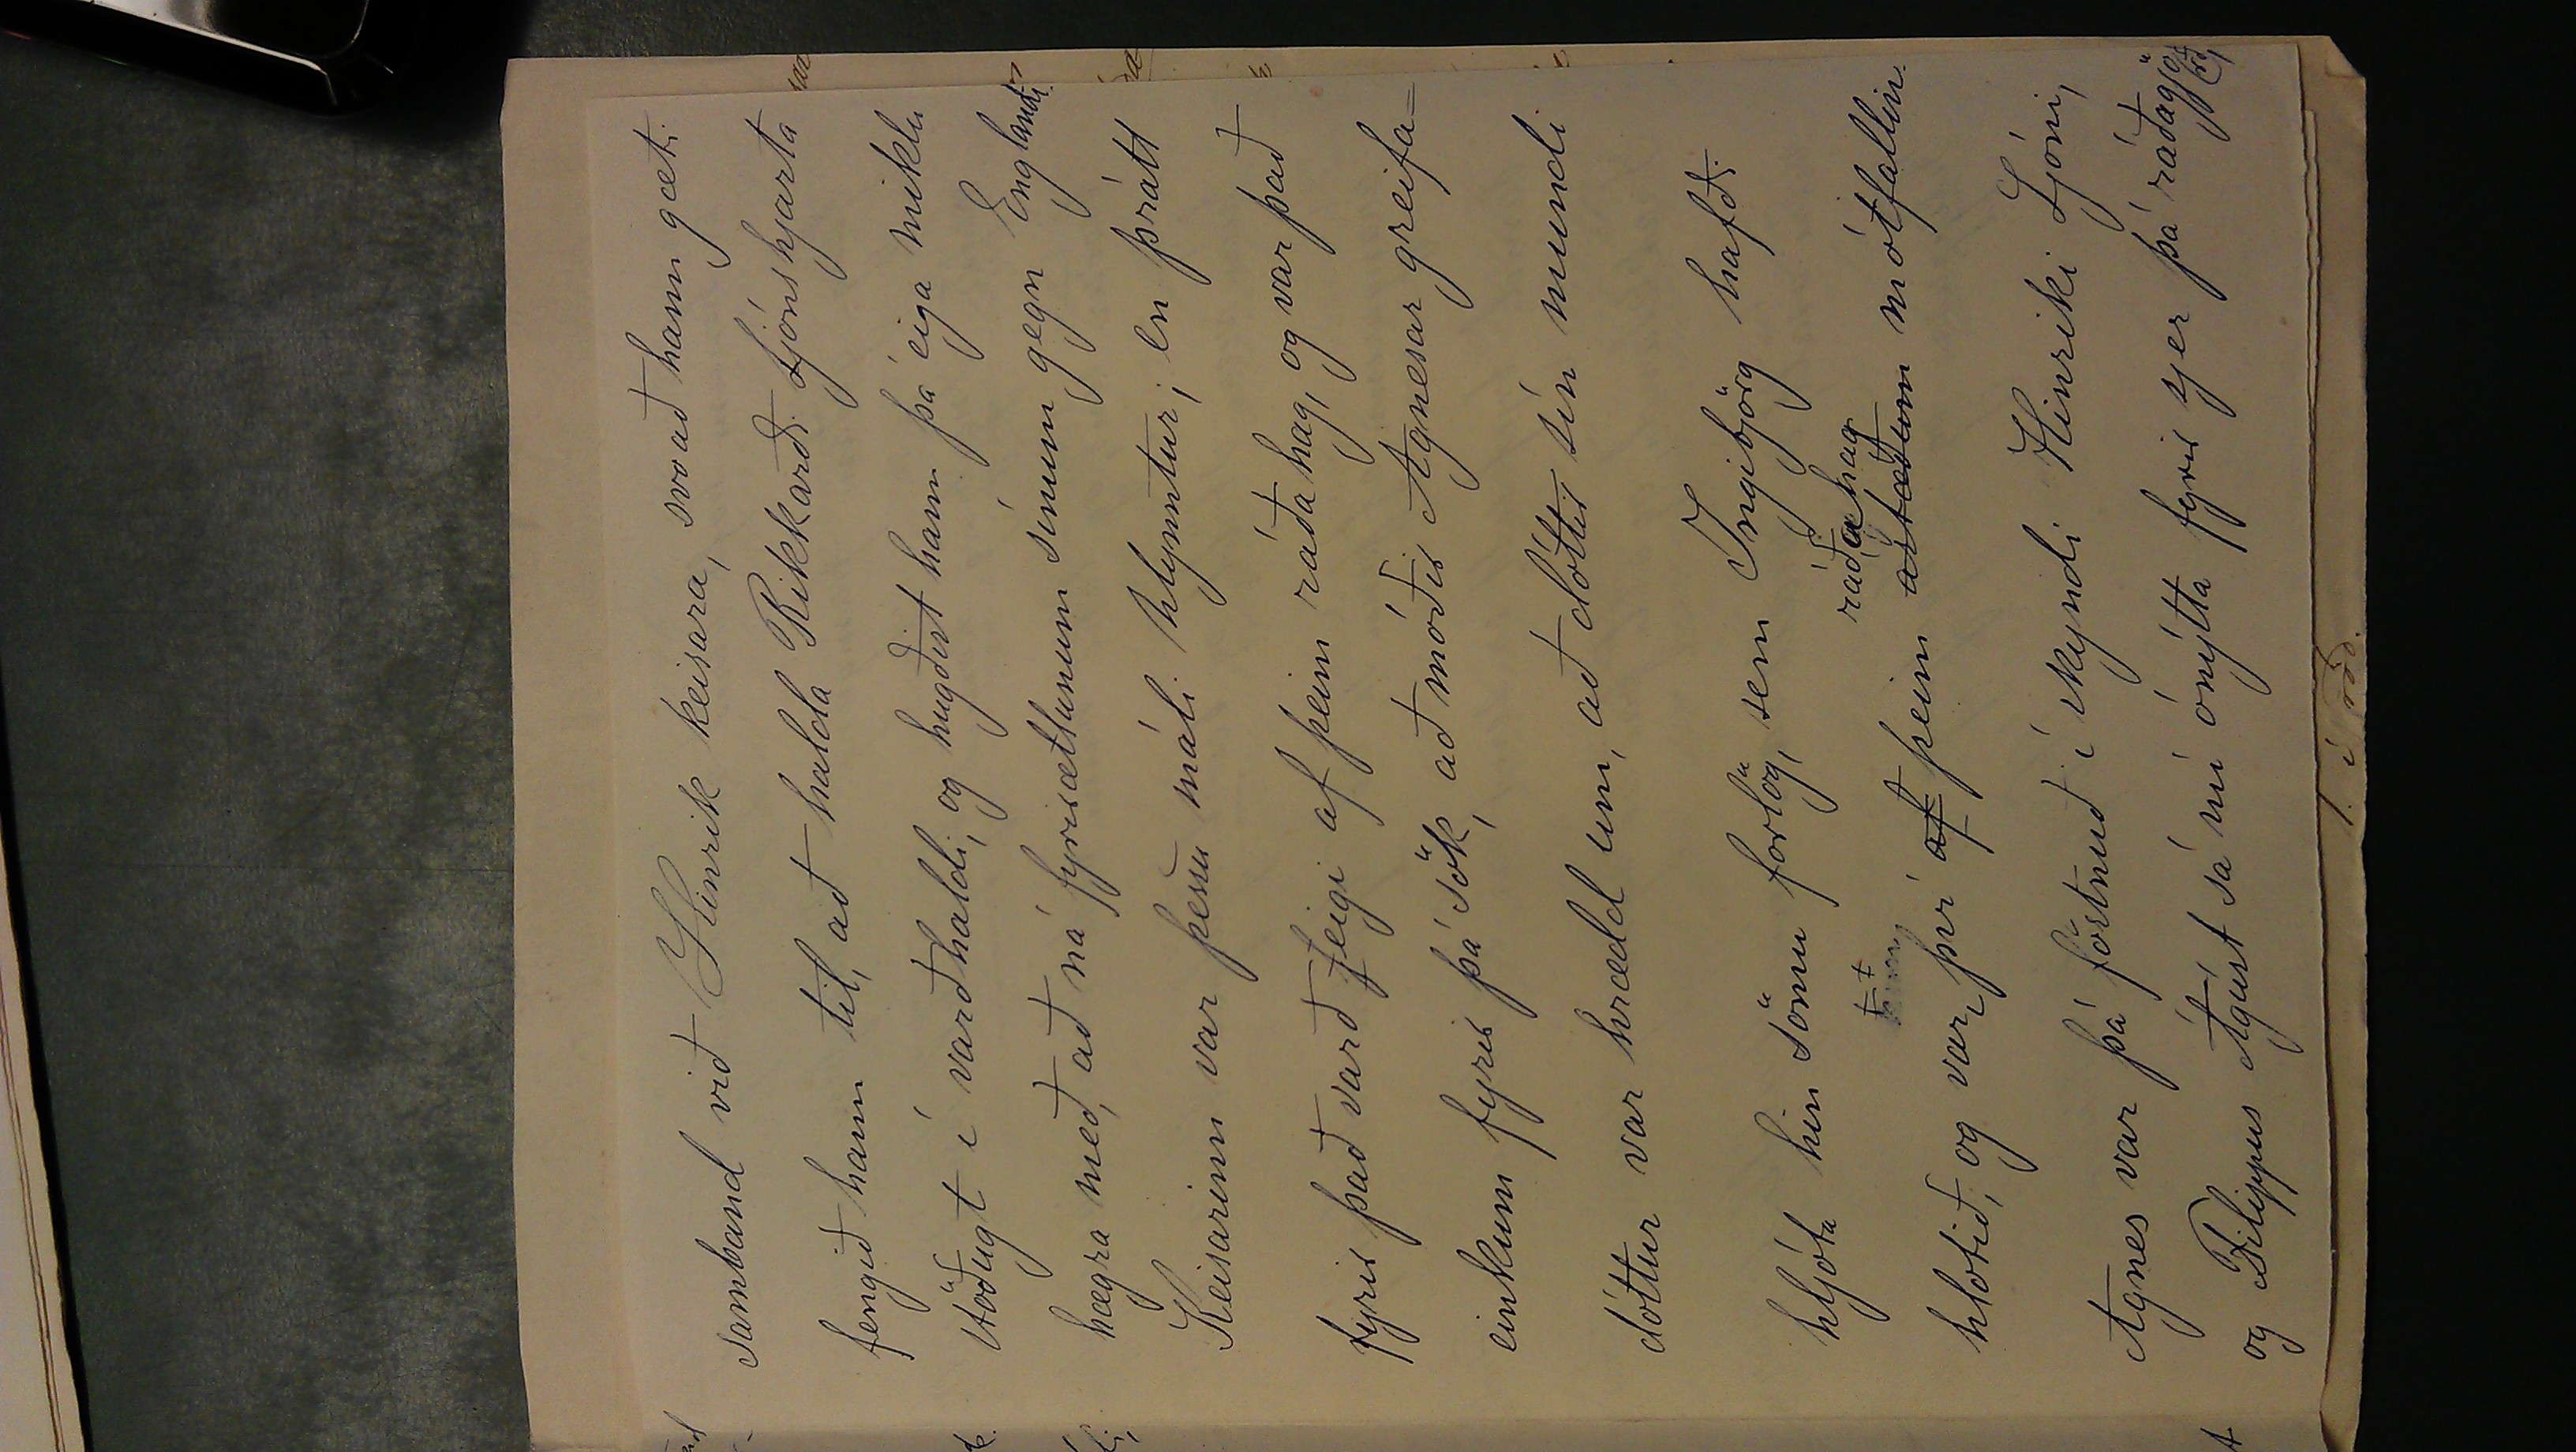 sambandi við Hinrik keisara, svo að hann gæti
fengið hann til, að halda Rikkarði Ljónshjarta
stöðugt í varðhaldi, og hugðist hann þá eiga miklu
hægra með, að ná fyrirætlunum sínum gegn Englandi.
Keisarinn var þessu máli hlynntur; en þrátt
fyrir það varð eigi af þeim ráðahag, og var það
einkum fyrir þá sök, að móðir Agnesar greifa-
dóttur var hrædd um, að dóttir sín mundi
hljóta hin sömu forlög, sem Ingibjörg hafði
ráðahag
hlotið, og var því af þeim mótfallin.
Agnes var þá föstnuð í skyndi Hinriki Ljóni,
og Filippus Ágúst sá nú ónýtta fyrir sjer þá ráðagjörð,